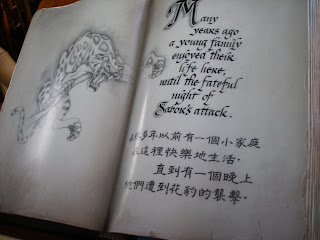 Many
years ago
a young family
enjoyed their
life here,
until the fateful
night of
Sabor's attack.
多年以前有一個小家庭
這裡快樂地生活.
直到有一個晚上
他們遭到花豹的襲擊.